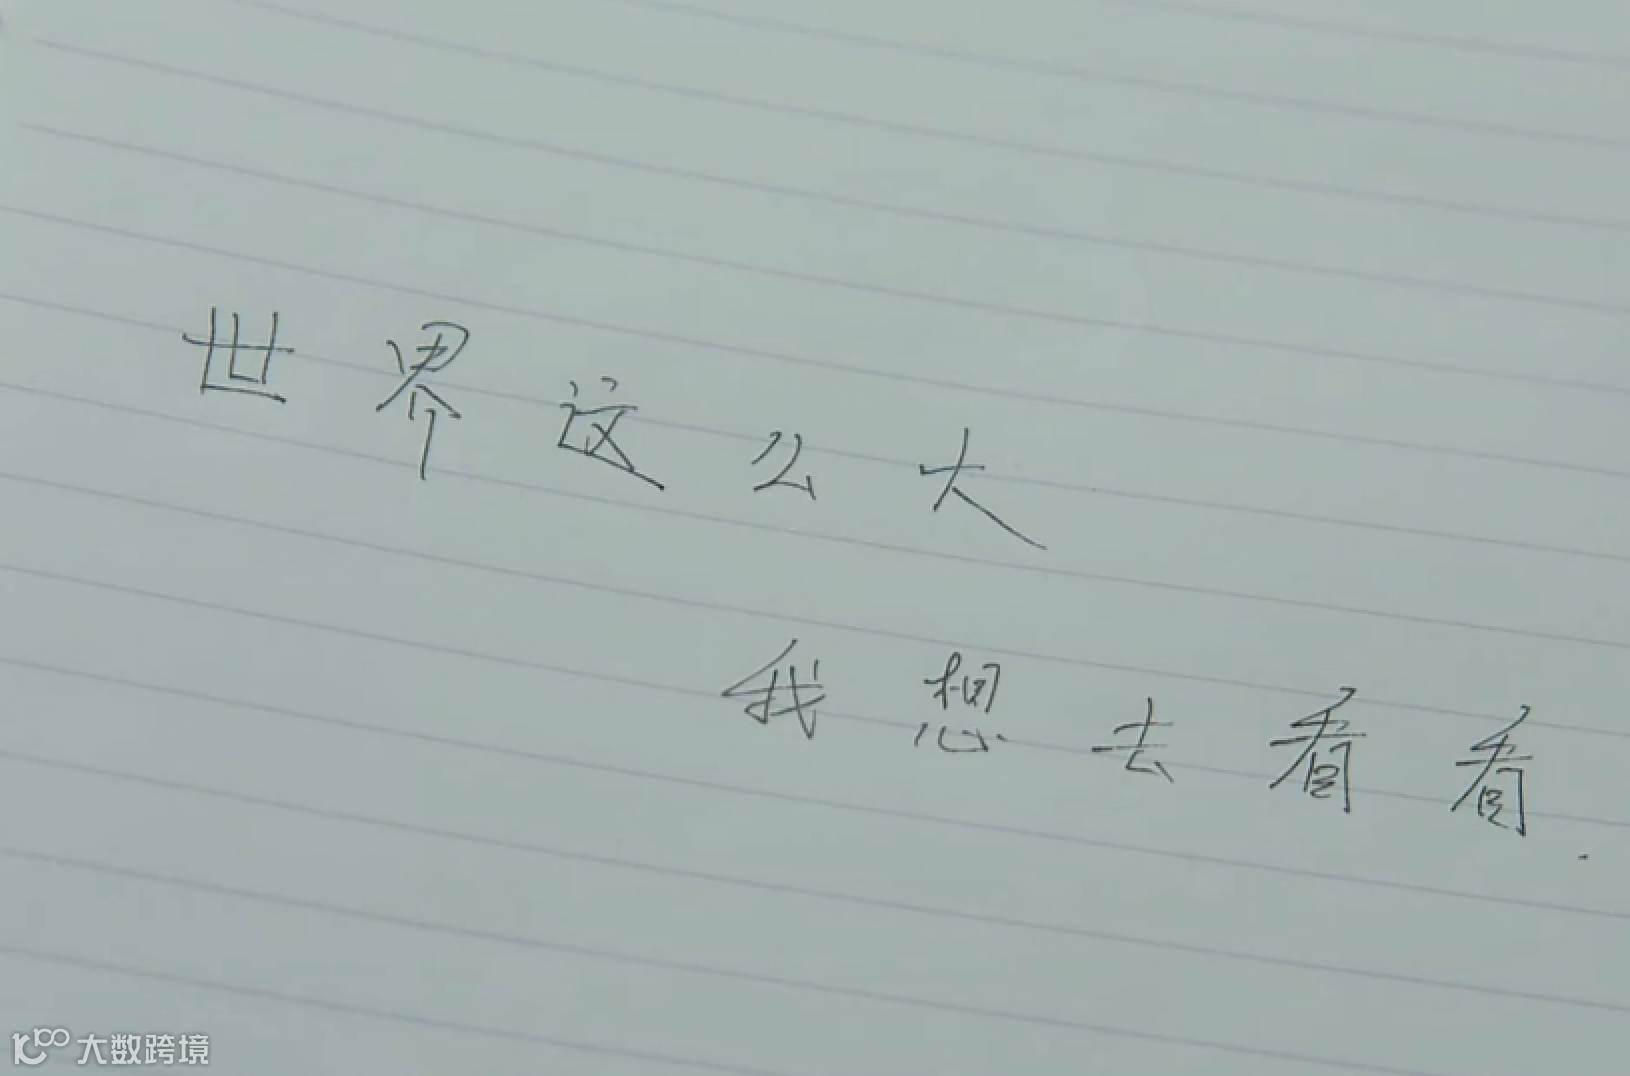 世界这么大
我想去看看.
大数跨境